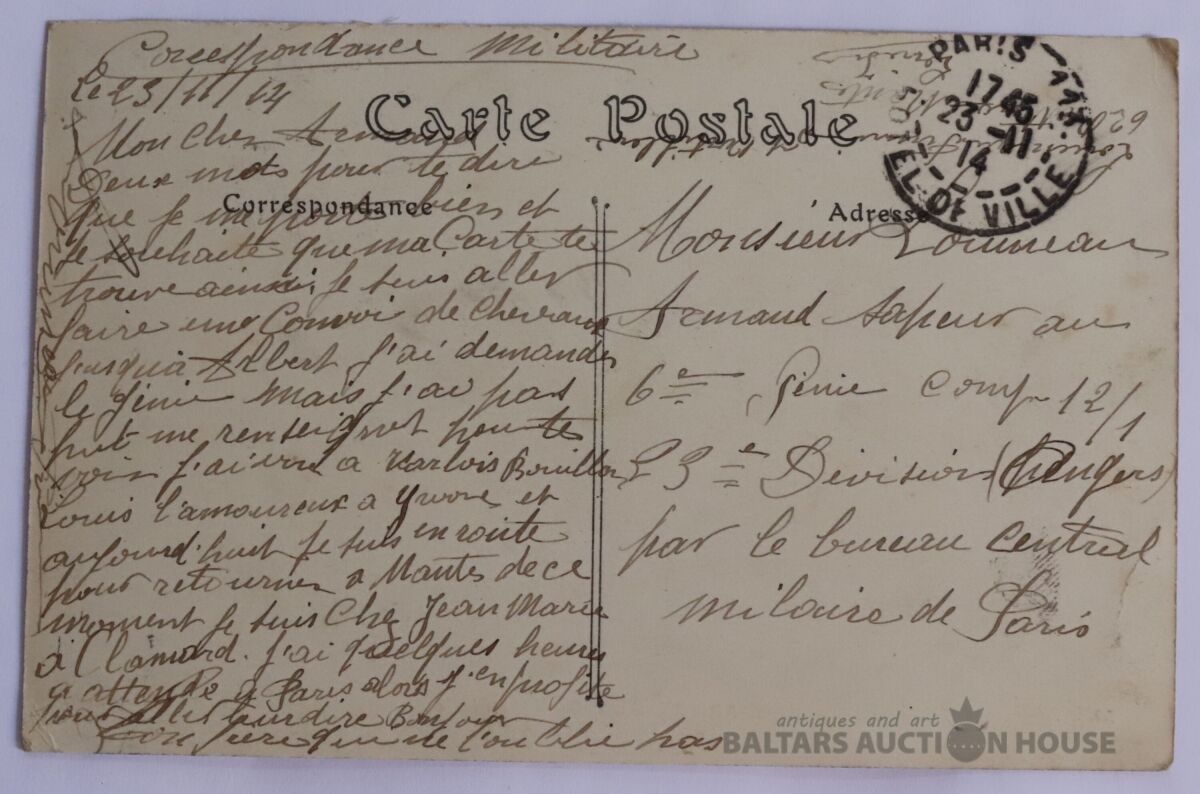 Correspondance Militaire
le 23/11/14
Carte Postale
Correspondance
Adresse
Mon Cher Armand
Deux mots pour te dire
que je me porte bien et
je souhaite que ma Carte te
trouve ainsi. je suis aller
faire une Convoi de chevaux
jusqu'à Albert j'ai demander
le génie mais j'ai pas
put me renseignet pour te
voir j'ai vu a Bouillon
Louis l'amoureux a Yvone et
aujourd'huit je suis en route
pour retourner a Mantes de ce
moment je suis Chez Jean Marie
a Clamard. j'ai quelques heures
a attendre a Paris alors j'en profite
pour aller leur dire Bonjour
Ton frère qui ne t'oublie pas
Monsieur
Armand sapeur au
6e Génie Comp 12/1
23e Division (Angers)
par le bureau central
milaire de Paris
PARIS 113
1745
23 -11
14
HOTEL DE VILLE
antiques and art
BALTARS AUCTION HOUSE